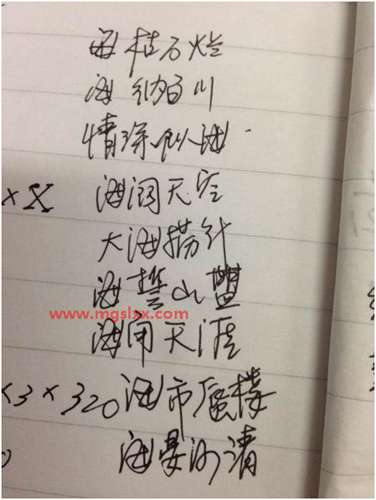 海枯石烂
海纳百川
情深似海.
×X 海阔天空
大海捞针
海誓山盟
www.mgslxx.com
海角天涯
×3×320 海市蜃楼
海晏河清